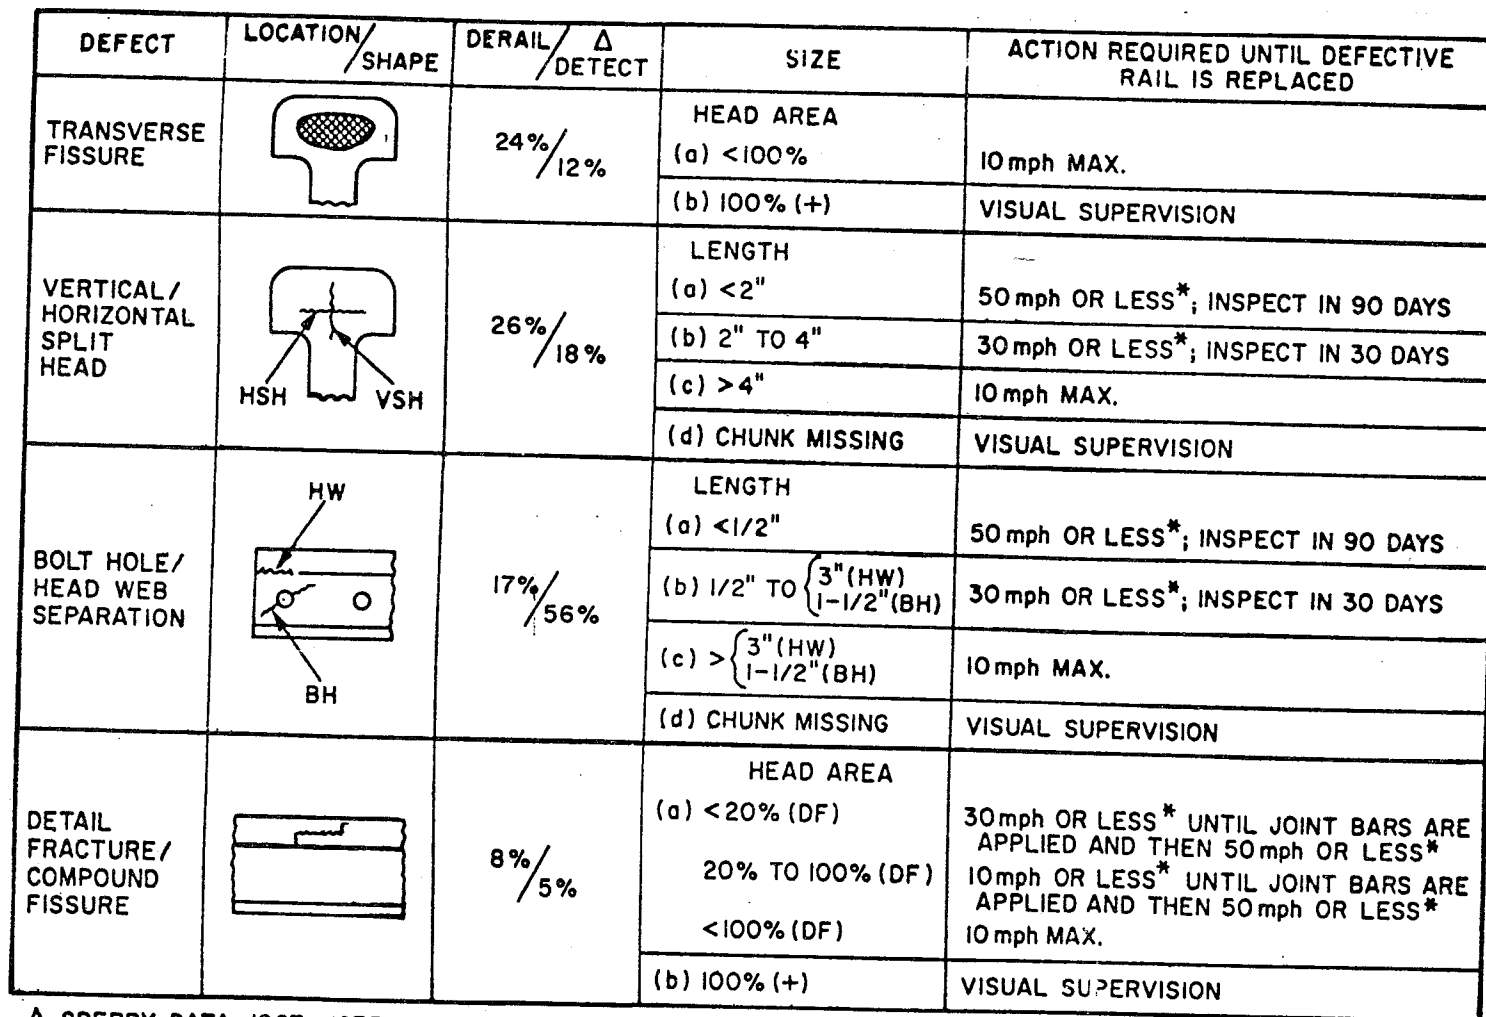 DEFECT
LOCATION/SHAPE
DERAIL/Δ DETECT
SIZE
ACTION REQUIRED UNTIL DEFECTIVE
RAIL IS REPLACED
TRANSVERSE
FISSURE
24%/12%
HEAD AREA
(a) <100%
10 mph MAX.
(b) 100% (+)
VISUAL SUPERVISION
VERTICAL/
HORIZONTAL
SPLIT
HEAD
HSH
VSH
26%/18%
LENGTH
(a) <2"
50 mph OR LESS*; INSPECT IN 90 DAYS
(b) 2" TO 4"
30 mph OR LESS*; INSPECT IN 30 DAYS
(c) >4"
10 mph MAX.
(d) CHUNK MISSING
VISUAL SUPERVISION
BOLT HOLE/
HEAD WEB
SEPARATION
HW
BH
17%/56%
LENGTH
(a) <1/2"
50 mph OR LESS*; INSPECT IN 90 DAYS
(b) 1/2" TO { 3" (HW)
1-1/2" (BH)
30 mph OR LESS*; INSPECT IN 30 DAYS
(c) > { 3" (HW)
1-1/2" (BH)
10 mph MAX.
(d) CHUNK MISSING
VISUAL SUPERVISION
DETAIL
FRACTURE/
COMPOUND
FISSURE
8%/5%
HEAD AREA
(a) <20% (DF)
30 mph OR LESS* UNTIL JOINT BARS ARE
APPLIED AND THEN 50 mph OR LESS*
20% TO 100% (DF)
10 mph OR LESS* UNTIL JOINT BARS ARE
APPLIED AND THEN 50 mph OR LESS*
<100% (DF)
10 mph MAX.
(b) 100% (+)
VISUAL SUPERVISION
Δ SPERRY DATA